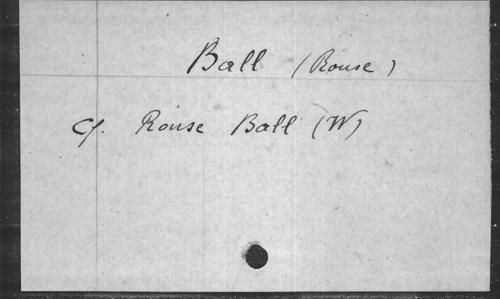 Ball (Rouse)
Cf. Rouse Ball (W)